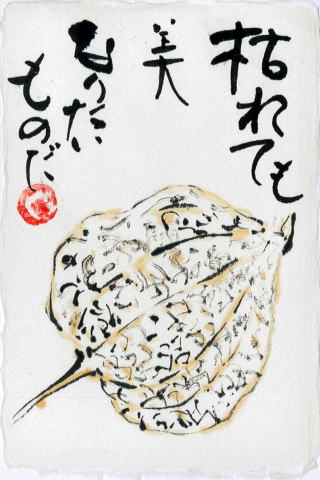 枯れても
美
ありたい
ものだ